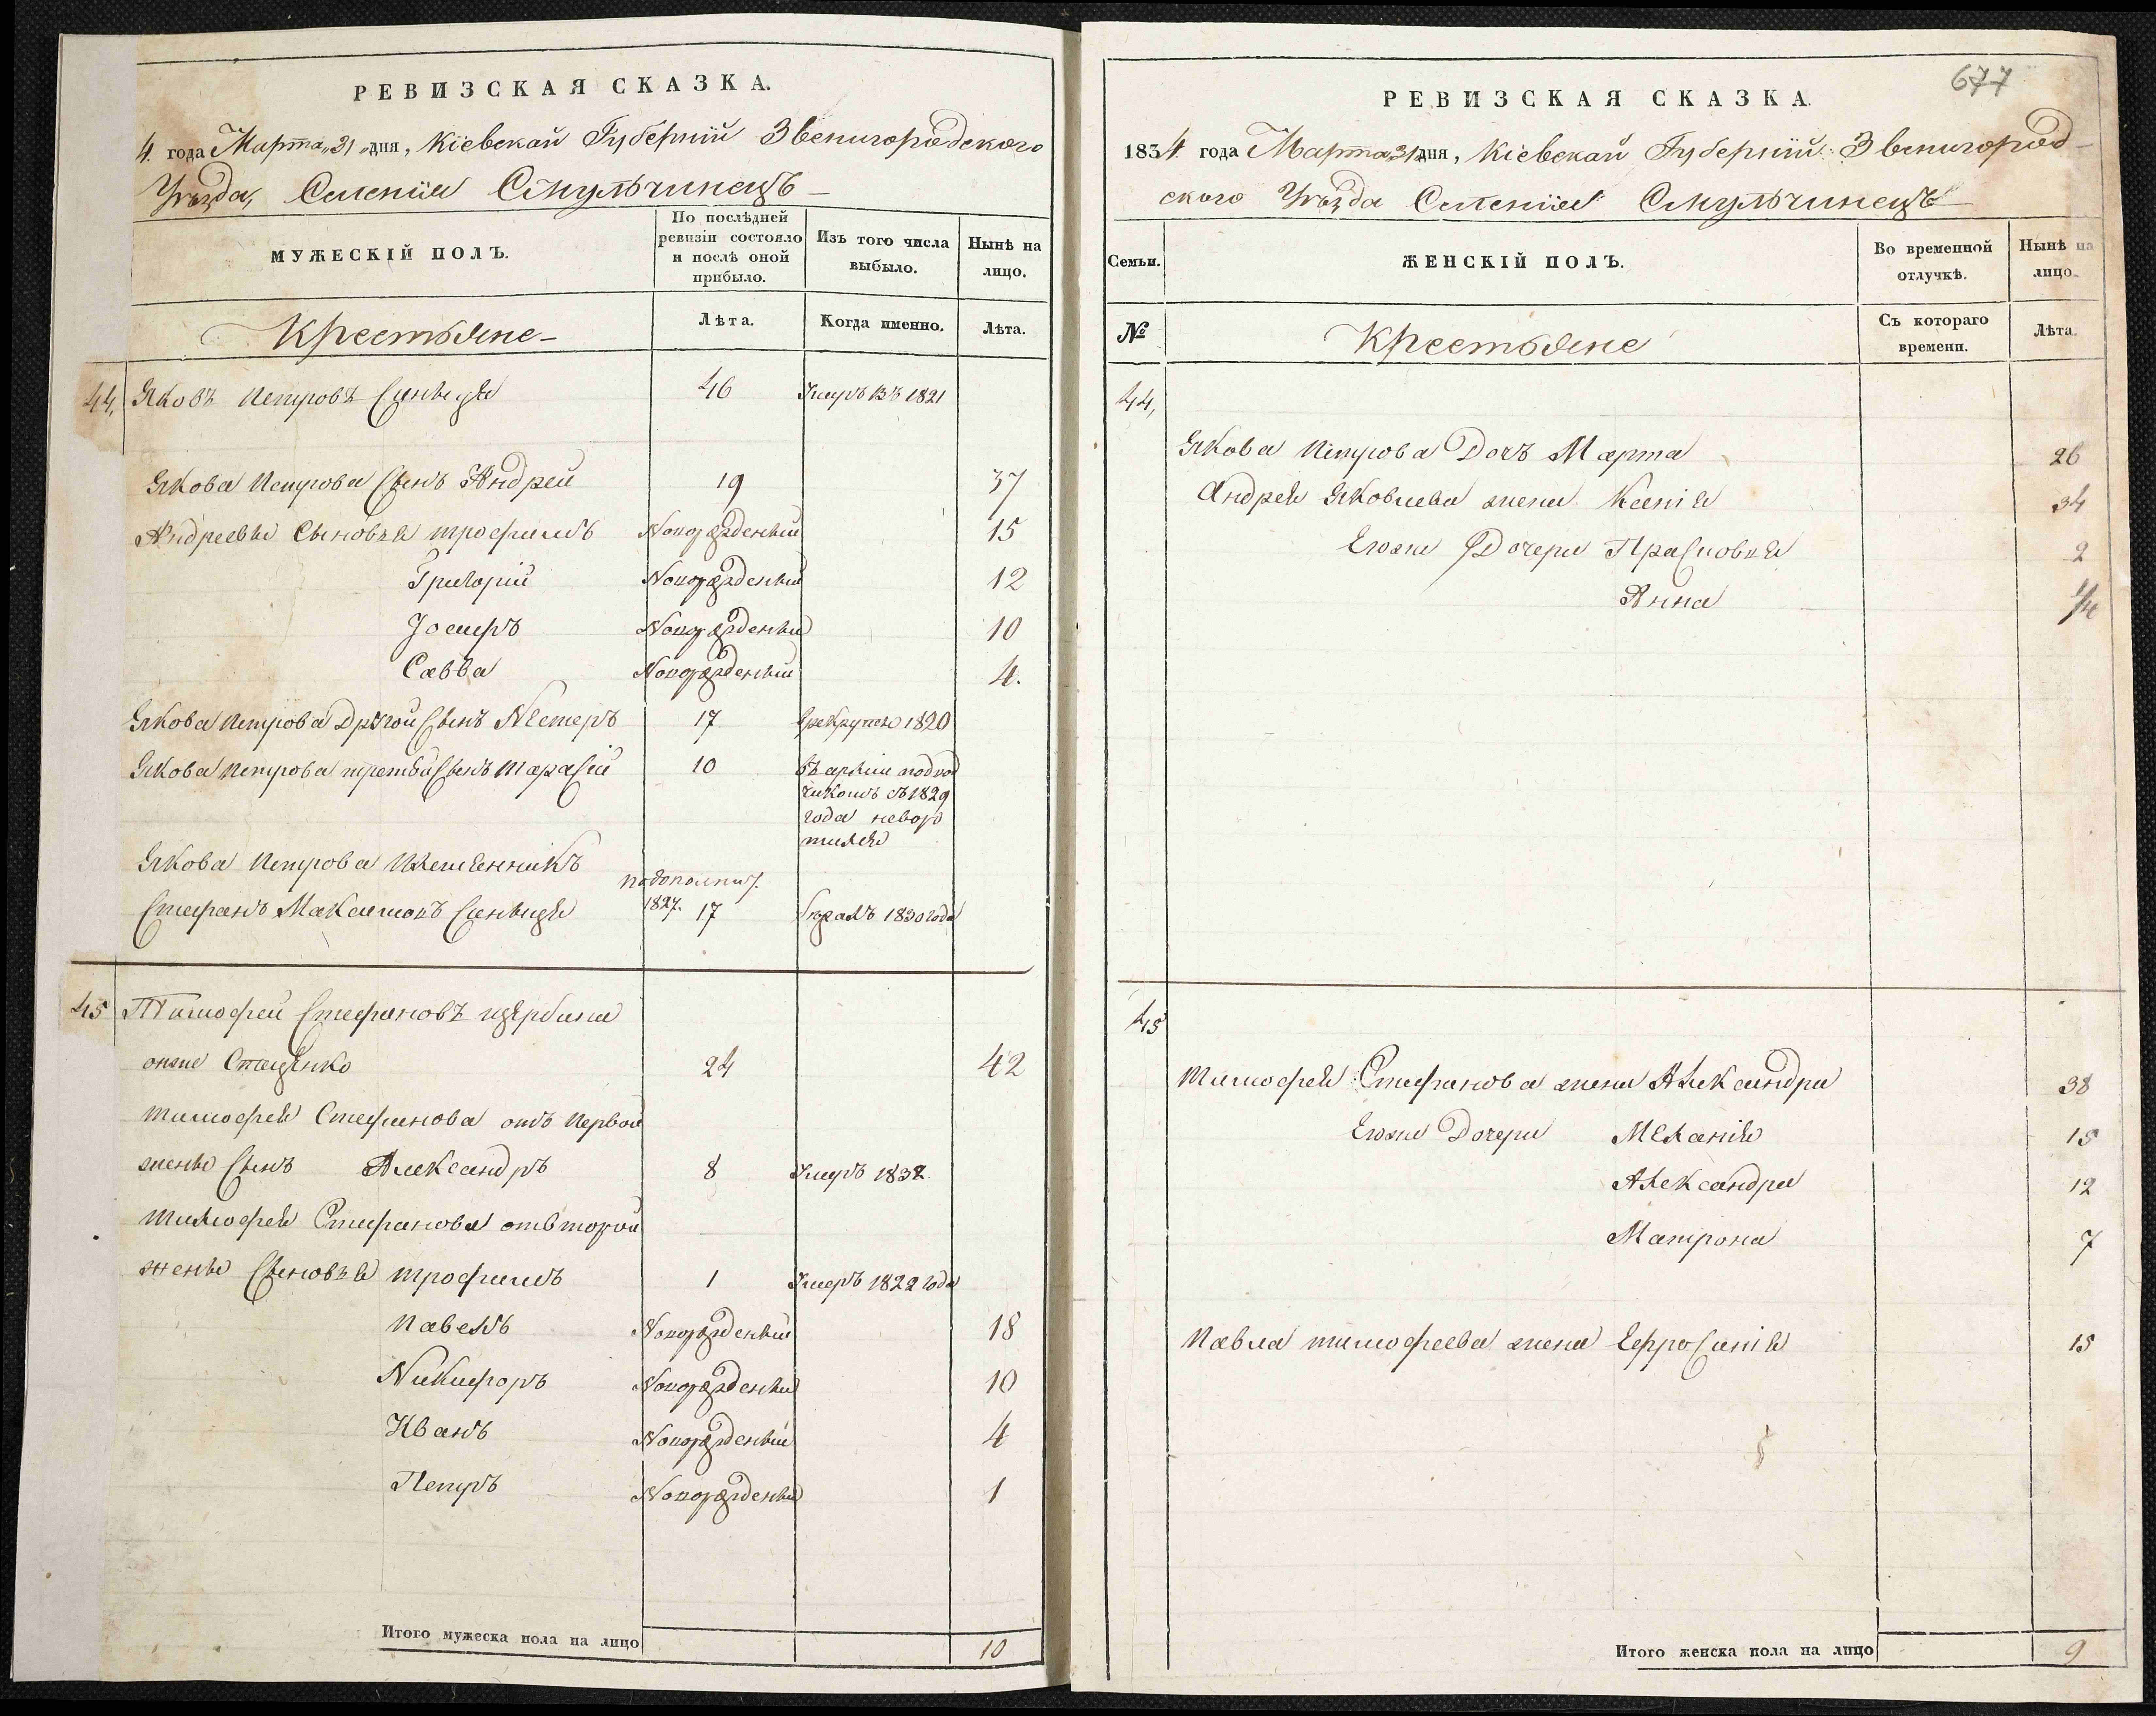 РЕВИЗСКАЯ СКАЗКА.
4. года Марта „31„ дня, Кіевской Губерніи Звенигородского
Уѣзда, Селенія Смульчинецъ
МУЖЕСКІЙ ПОЛЪ.
По послѣдней
ревизіи состояло
и послѣ оной
прибыло.
Изъ того числа
выбыло.
Нынѣ на
лицо.
Крестьяне
Лѣта.
Когда именно.
Лѣта.
44, Яковъ Петровъ Синыця 46 Умръ въ 1821
Якова Петрова Сынъ Андрей 19 37
Андреевы Сыновья Трофимъ Новорожденный 15
Григорій Новорожденный 12
Іосифъ Новорожденный 10
Савва Новорожденный 4.
Якова Петрова Другой Сынъ Нестеръ 17 1820
Якова Петрова третій Сынъ Тарасій 10 въ арміи
съ 1829
года
Якова Петрова Племенникъ
1827.
Стефанъ Максимовъ Синыця 17 1830 года
45 Тимофей Стефановъ щербина
онже Стаценко 24 42
Тимофея Стефанова отъ Первой
жены Сынъ Александръ 8 Умеръ 1832.
Тимофея Стефанова отвторой
жены Сыновья Трофимъ 1 Умеръ 1822 года
Павелъ Новорожденный 18
Никифоръ Новорожденный 10
Иванъ Новорожденный 4
Петръ Новорожденный 1
Итого мужеска пола на лицо 10
677
РЕВИЗСКАЯ СКАЗКА.
1834 года Марта 31 дня, Кіевской Губерніи Звенигород-
ского Уѣзда Селенія Смульчинецъ
Семьи.
ЖЕНСКІЙ ПОЛЪ.
Во временной
отлучкѣ.
Нынѣ на
лицо.
№
Крестьяне
Съ котораго
времени.
Лѣта.
44,
Якова Петрова Дочь Марта 26
Андрея Яковлева жена Ксенія 34
Егоже Дочери 2
Анна 1/4
45
Тимофея Стефанова жена Александра 38
Егоже Дочери Меланія 15
Александра 12
Матрона 7
Павла тимофеева жена Ефросинія 15
Итого женска пола на лицо 9